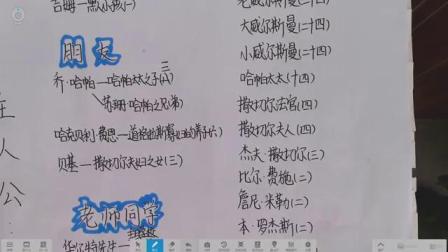 吉姆一黑小孩(一)
朋友
三
乔·哈帕一哈帕太太之子(八)
苏珊·哈帕之兄(弟)
哈克贝利·费恩一道格拉斯寡妇的养子(六)
贝基一撒切尔夫妇之女(三)
老师同学
主人公
老威尔斯曼(二十四)
大威尔斯曼(二十四)
小威尔斯曼(二十四)
哈帕太太(十四)
撒切尔法官(四)
撒切尔夫人(四)
杰夫·撒切尔(三)
比尔·费施(二)
詹尼·米勒(二)
本·罗杰斯(二)